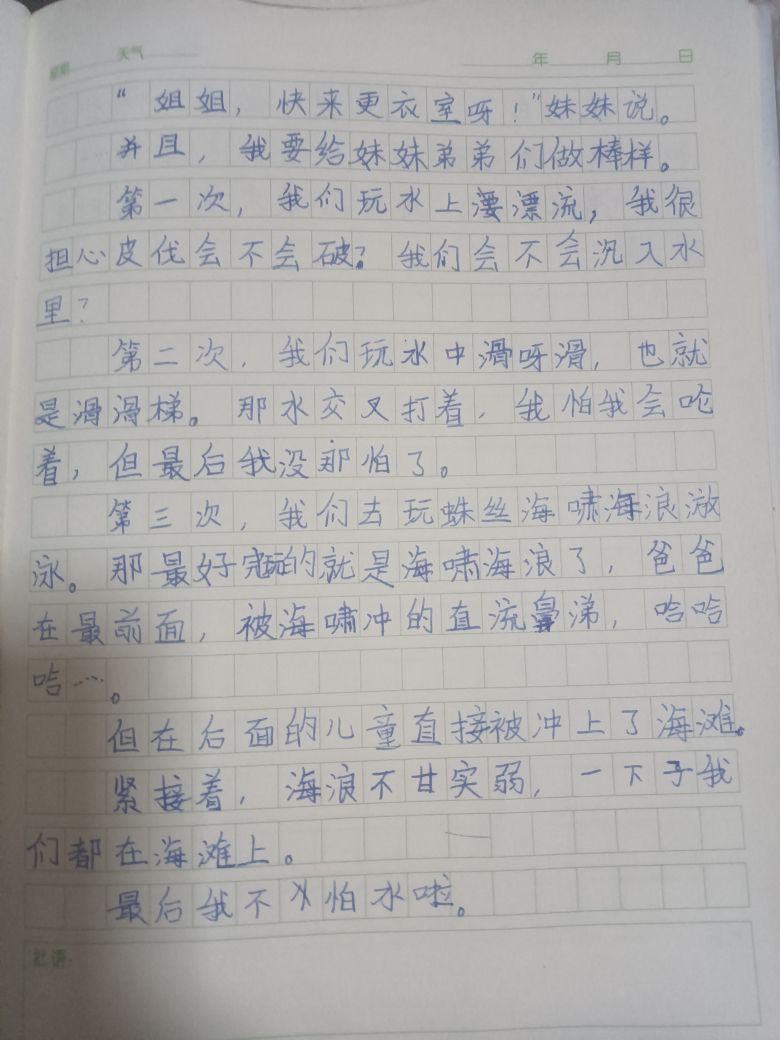 星期 天气 年 月 日
“姐姐，快来更衣室呀！”妹妹说。
并且，我要给妹妹弟弟们做棒样。
第一次，我们玩水上漂流，我很
担心皮伐会不会破？我们会不会沉入水
里？
第二次，我们玩水中滑呀滑，也就
是滑滑梯。那水交叉打着，我怕我会呛
着，但最后我没那怕了。
第三次，我们去玩蛛丝海啸海浪激
泳。那最好玩的就是海啸海浪了，爸爸
在最前面，被海啸冲的直流鼻涕，哈哈
哈…。
但在后面的儿童直接被冲上了海滩。
紧接着，海浪不甘实弱，一下子我
们都在海滩上。
最后我不怕水啦。
批语：